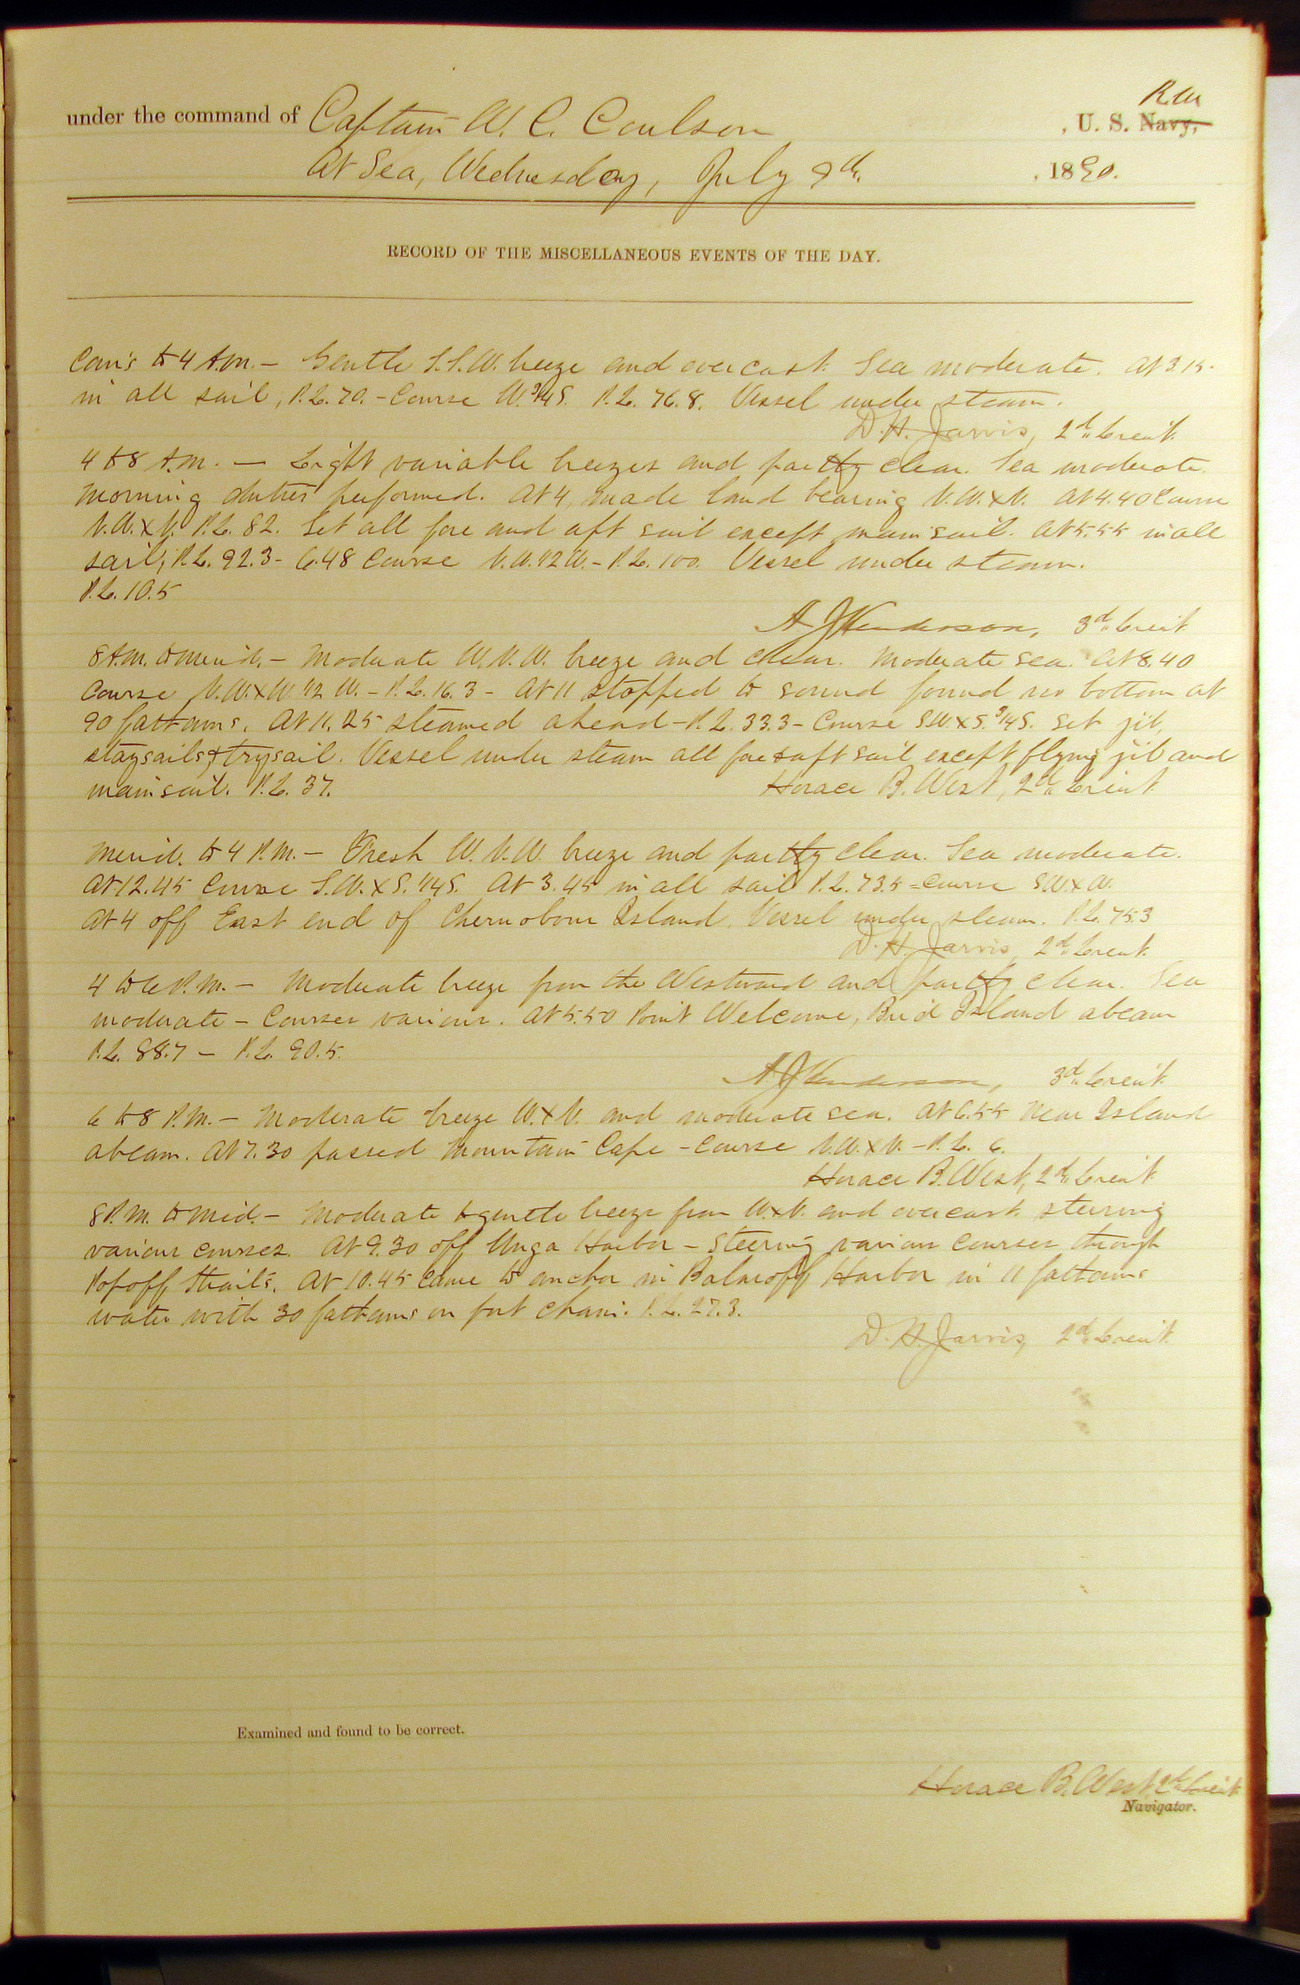 under the command of Captain W. C. Coulson , U. S. Navy, R.M.
At Sea, Wednesday, July 9th. , 1890.
RECORD OF THE MISCELLANEOUS EVENTS OF THE DAY.
Com's to 4 A.M. — Gentle S.S.W. breeze and overcast. Sea moderate. At 3.15
in all sail, P.L. 70. - Course W. 3/4 S. P.L. 76.8. Vessel under steam.
D. H. Jarvis, 2d Lieut.
4 to 8 A.M. — Light variable breezes and partly clear. Sea moderate.
Morning duties performed. At 4, made land bearing N.W. x N. At 4.40 Course
N.W. x N. P.L. 82. Set all fore and aft sail except main sail. At 5.55 in all
sail; P.L. 92.3 - 6.48 Course N.W. 1/2 W. - P.L. 100. Vessel under steam.
P.L. 10.5
A. J. Henderson, 3d Lieut.
8 A.M. to merid. — Moderate W.N.W. breeze and clear. Moderate sea. At 8.40
Course N.W. x W. 1/2 W. - P.L. 16.3 - At 11 stopped to sound found no bottom at
90 fathoms. At 11.25 steamed ahead - P.L. 33.3 - Course SW x S. 3/4 S. Set jib,
staysails & trysail. Vessel under steam all fore & aft sail except flying jib and
mainsail. P.L. 37. Horace B. West, 2d Lieut.
Merid. to 4 P.M. — Fresh W.N.W. breeze and partly clear. Sea moderate.
At 12.45 Course S.W. x S. 1/4 S. At 3.45 in all sail P.L. 73.5 - Course SW x W.
At 4 off East end of Chernobour Island. Vessel under steam. P.L. 75.3
D. H. Jarvis, 2d Lieut.
4 to 6 P.M. — Moderate breeze from the Westward and partly clear. Sea
moderate - Courses various. At 5.50 Point Welcome, Bird Island abeam
P.L. 88.7 — P.L. 90.5.
A. J. Henderson, 3d Lieut.
6 to 8 P.M. — Moderate breeze W. x N. and moderate sea. At 6.55 Near Island
abeam. At 7.30 passed Mountain Cape - Course N.W. x N. - P.L. 6.
Horace B. West, 2d Lieut.
8 P.M. to mid. — Moderate to gentle breeze from W. x N. and overcast. Steering
various courses. At 9.30 off Unga Harbor - Steering various courses through
Popoff Straits. At 10.45 came to anchor in Balaroff Harbor in 11 fathoms
water with 30 fathoms on port chain. P.L. 27.3.
D. H. Jarvis, 2d Lieut.
Examined and found to be correct.
Horace B. West, 2d Lieut
Navigator.